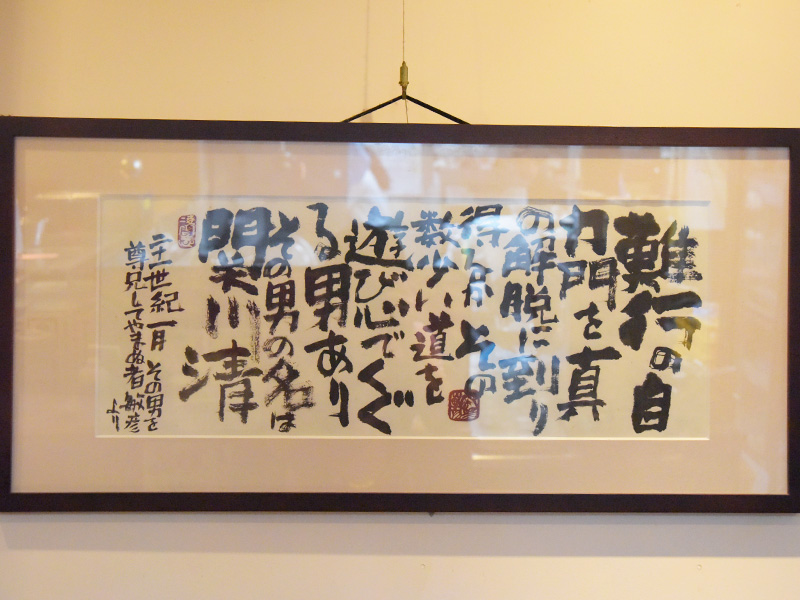 難行の自
力門を真
の解脱に到り
得るか その
数少い道を
遊び心でくぐ
る男あり
その男の名は
関川清
二十一世紀一月 その男を
尊兄してやまぬ者 敏彦
より